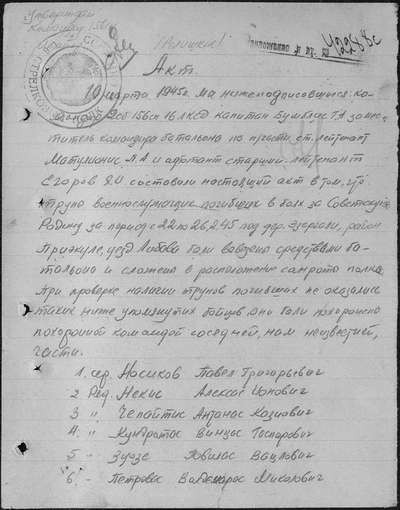 Утверждаю
Командир 156
Акт.
10 марта 1945г. Мы нижеподписавшиеся ко-
мандир 2сб 156сп 16 ЛКСД капитан Бумблис ТА замес-
титель командира батальона по п/части ст. лейтенант
Матулионис Л.А и адютант старший лейтенант
Егоров Я.И составили настоящий акт в том, что
трупы военнослужащих погибших в боях за Советскую
Родину за период с 22 по 26.2.45 под дер. район
Приэкуле, уезд Либава были вывезены средствами ба-
тальона и сложены в расположение санроты полка
При проверке наличии трупов погибших не оказалось
таких ниже упомянутых бойцов они были похоронены
похоронной командой соседней, нам неизвестной,
части.
1. сер. Носиков Павел Григорьевич
2 Ряд. Некис Алексас Ионович
3 " Чепайтис Антанас Казиович
4. " Кундротас Винцас Гаспарович
5 - " Зуозе Повилас Вацлович
6. - " Петровас Вальдемарас Миколович